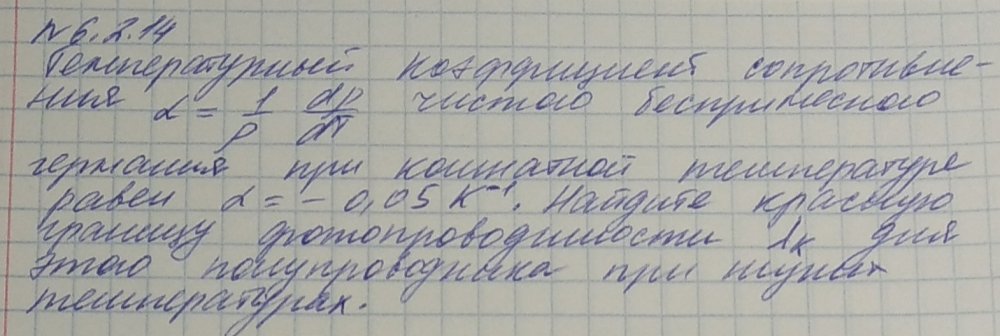 №6.2.14
Температурный коэффициент сопротивле-
ния α = 1/ρ dρ/dT чистого беспримесного
германия при комнатной температуре
равен α = - 0,05 К⁻¹. Найдите красную
границу фотопроводимости λк для
этого полупроводника при низких
температурах.